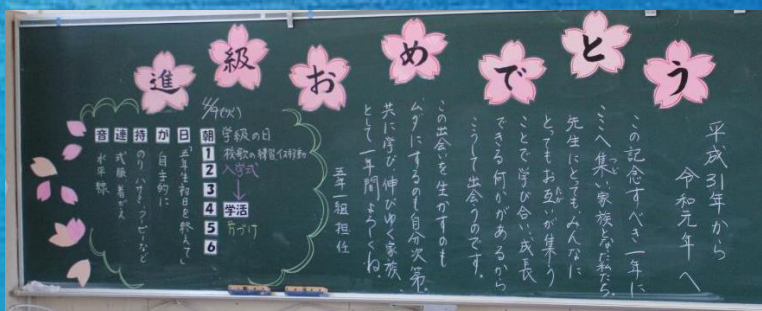 進級おめでとう
平成31年から
令和元年へ
この記念すべき一年に
ここへ集い家族となった私たち。
先生にとっても、みんなに
とってもお互いが集う
ことで学び合い、成長
できる何かがあるから
こうして出会うのです。
この出会いを生かすのも
ムダにするのも自分次第。
共に学び、伸びゆく家族
として一年間よろしくね。
五年一組担任
4/9(火)
朝 学級の日
1 校歌の練習イス移動
2 入学式
3
4 学活
5 片づけ
6
日 「五年生初日を終えて」
が 自主的に
持 のり、ハサミ、クーピーなど
連 式服着がえ
音 水平線